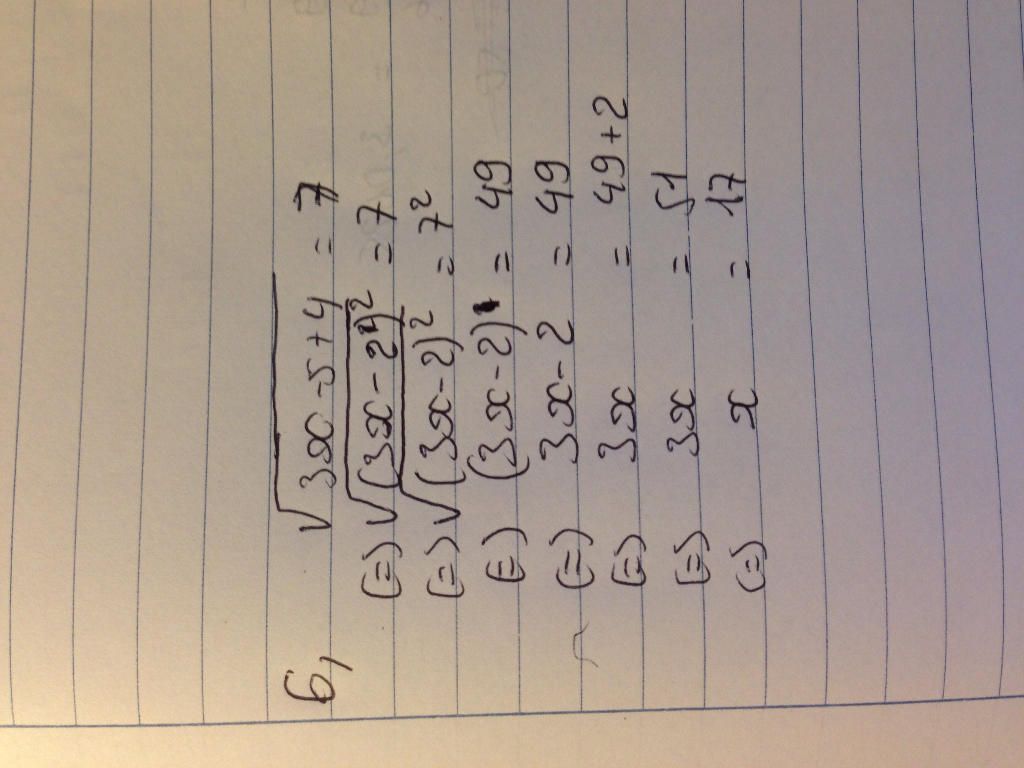 6, √3x - 5 + 4 = 7
(=) √(3x - 2)² = 7
(=) √(3x - 2)² = 7²
(=) (3x - 2) = 49
(=) 3x - 2 = 49
(=) 3x = 49 + 2
(=) 3x = 51
(=) x = 17